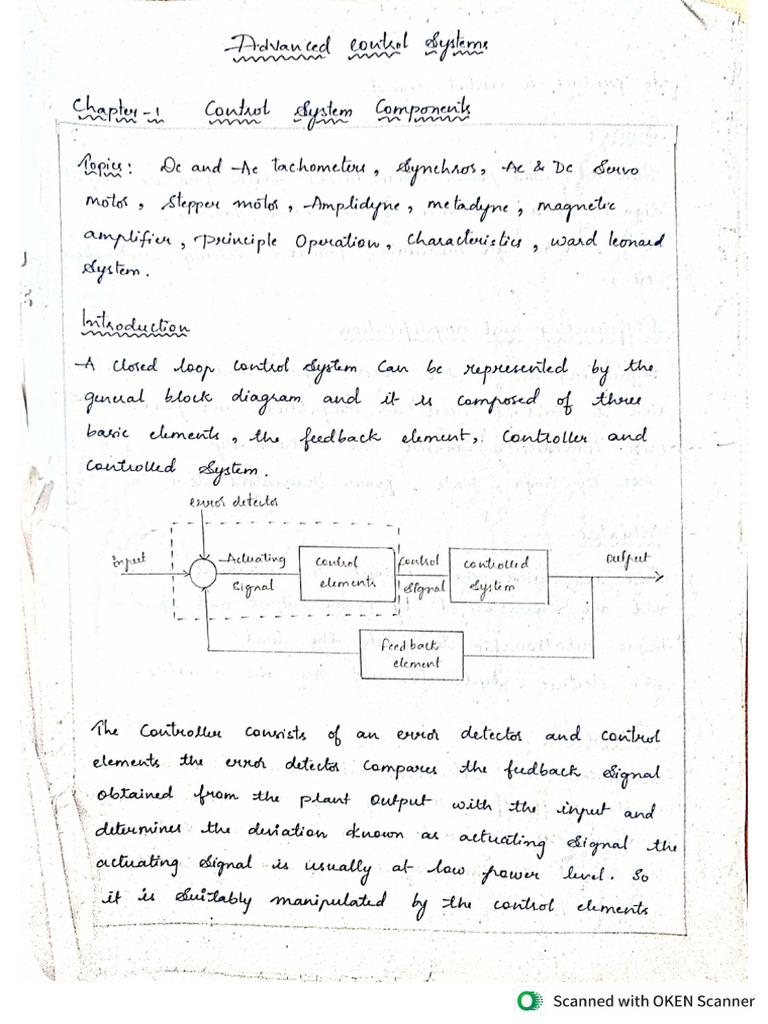 Advanced control Systems
Chapter-1 Control System Components
Topics: Dc and Ac tachometers, Synchros, Ac & Dc Servo
motos, Stepper motos, Amplidyne, metadyne, magnetic
amplifier, Principle Operation, Characteristics, ward leonard
System.
Introduction
A closed loop control System Can be represented by the
general block diagram and it is composed of three
basic elements, the feedback element, Controller and
Controlled System.
error detector
input
Actuating
Signal
control
elements
control
Signal
controlled
System
output
feedback
element
The Controller consists of an error detector and control
elements the error detector compares the feedback Signal
obtained from the plant Output with the input and
determines the deviation known as actuating Signal the
actuating Signal is usually at low power level. So
it is Suitably manipulated by the control elements
Scanned with OKEN Scanner